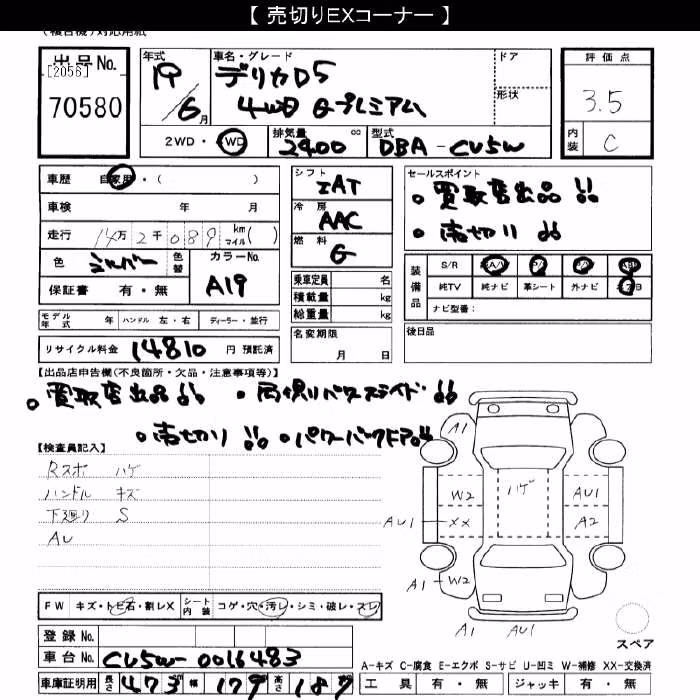 【 売切りEXコーナー 】
出品No.
[2056]
70580
年式
19/6月
車名・グレード
デリカD5
4WD Gプレミアム
ドア
形状
評価点
3.5
内装 C
2WD・4WD
排気量 2400 cc
型式 DBA-CV5W
車歴 自家用・( )
車検 年 月
走行 14万2千089 km マイル( )
色 シルバー 色替
カラーNo. A19
保証書 有・無
シフト
IAT
冷房
AAC
燃料
G
乗車定員 名
積載量 kg
総重量 kg
セールスポイント
。買取店出品!!
。売切り!!
装備品
S/R A/W P/S P/W ABS
純TV 純ナビ 革シート 外ナビ エアB
ナビ型番:
モデル年式 年 ハンドル 左・右 ディーラー・並行
名変期限
月 日
後日品
リサイクル料金 14810 円 預託済
【出品店申告欄(不良箇所・欠品・注意事項等)】
。買取店出品!! 。両側パワースライド!!
。売切り!! 。パワーバックドア!!
【検査員記入】
Rスポ ハゲ
ハンドル キズ
下廻り S
AU
A1
W2
ハゲ
AU1
AU1
XX
A2
A1
W2
A1
AU1
スペア
FW キズ・トビ石・割レX
シート内装 コゲ・穴・汚レ・シミ・破レ・スレ
登録No.
車台No. CV5W-0016483
車庫証明用 長さ 473 幅 179 高さ 187
A-キズ C-腐食 E-エクボ S-サビ U-凹ミ W-補修 XX-交換済
工具 有・無 ジャッキ 有・無